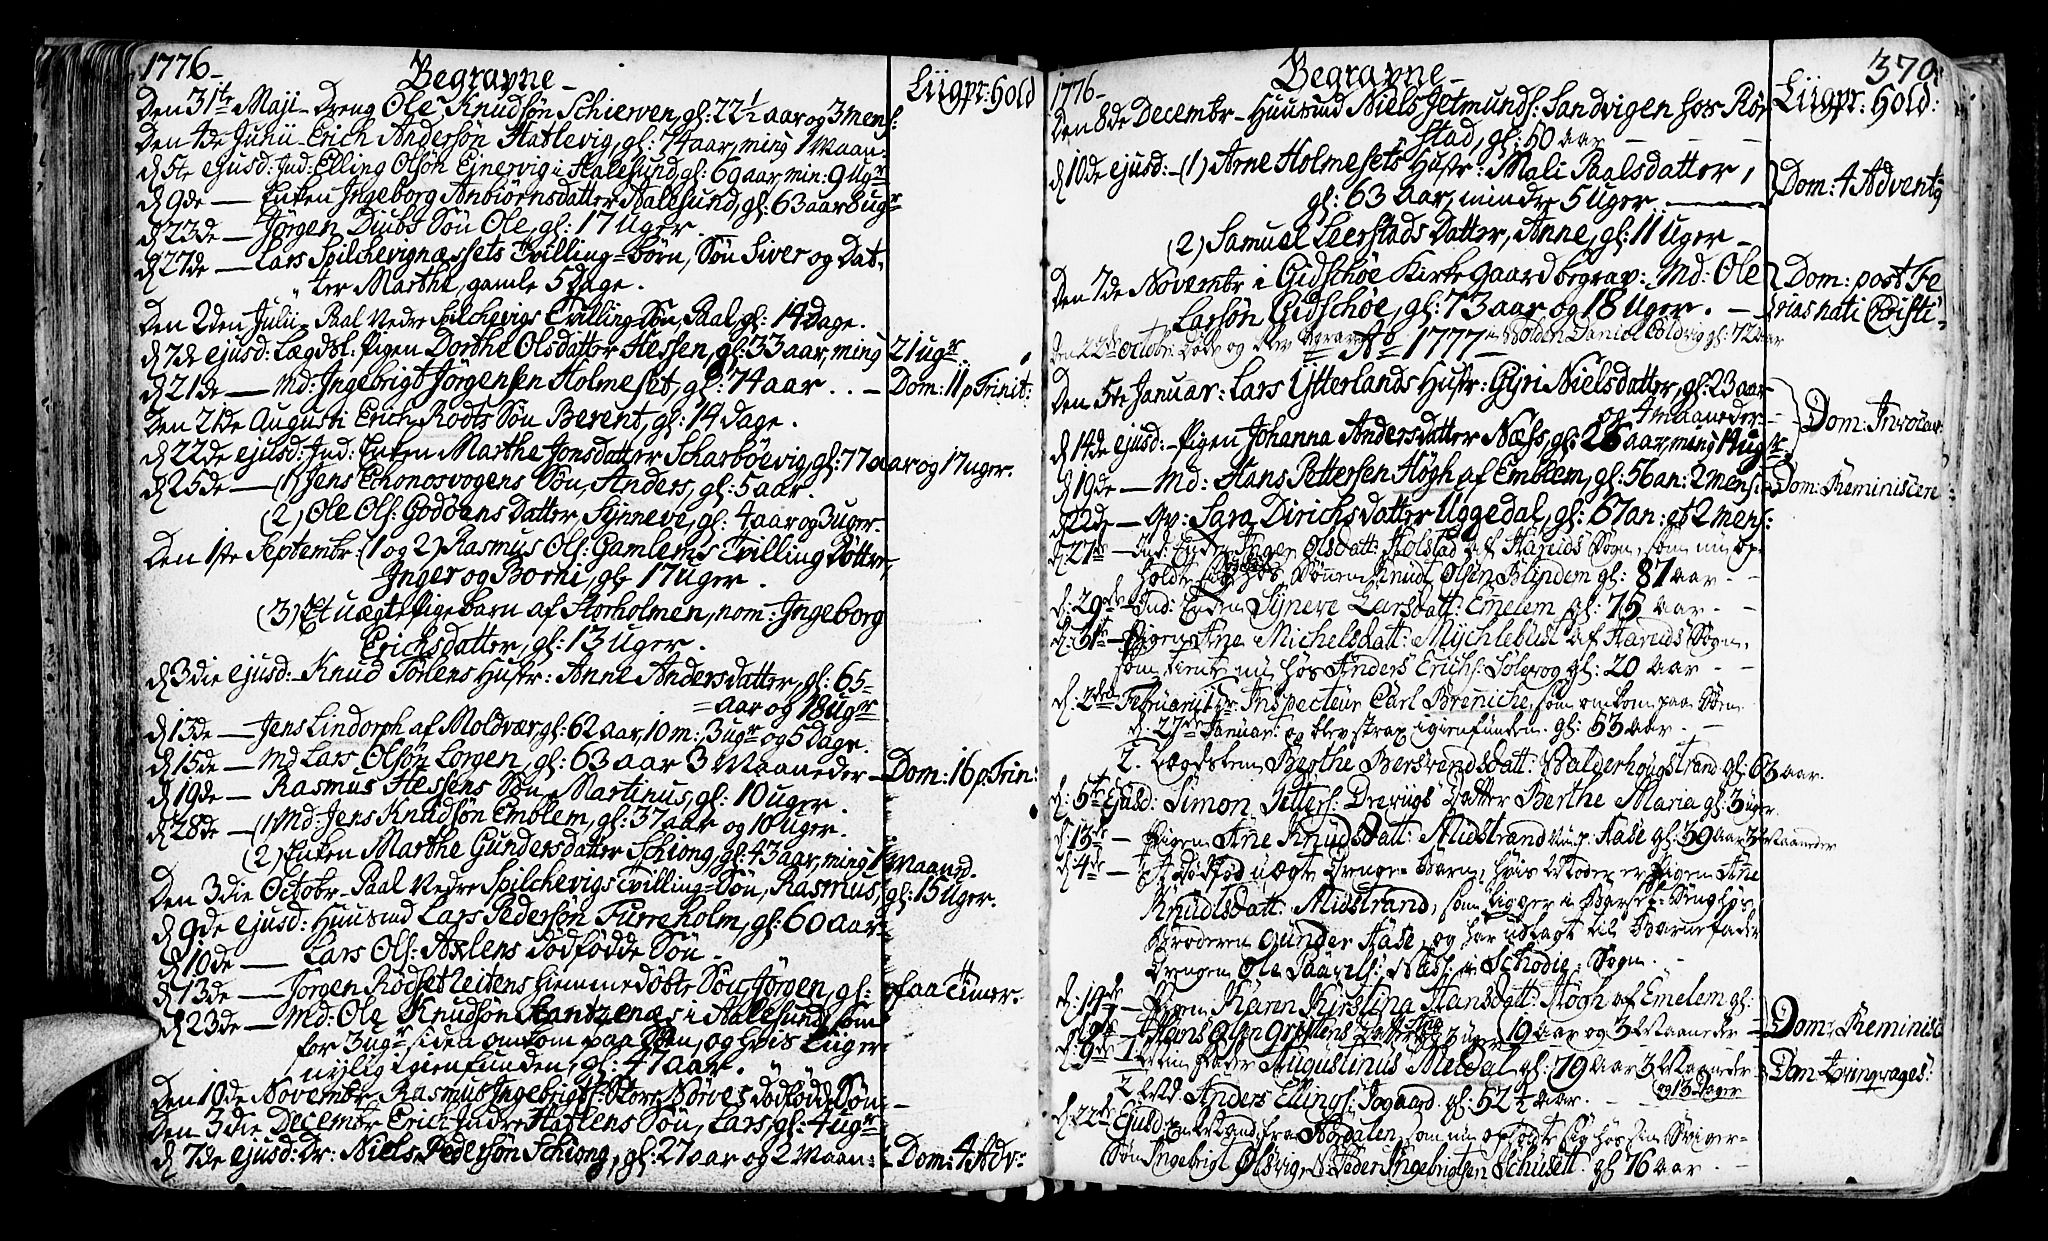 1776_
Begravne_
Liigpr: Hold
Den 31te Maji_ Dreng Ole Knudsøn Schierven, gl: 22 1/2 aar og 3 mens:
Den 4de Junii_ Erich Andersøn Hatlevig, gl: 74 aar, ming 1 Maan:
d 5te ejusd: Ind: Elling Olsøn Ejnervig i Aalesund, gl: 69 aar min: 9 ugr
d 9de — Enken Ingeborg Anbiørnsdatter Aalesund, gl: 63 aar 8 ugr
d 23de — Jørgen Diubs Søn Ole, gl: 17 Uger.
d 27de — Lars Spilchevignæssets Tvilling=børn, Søn Siver og Dat=
ter Marthe, gamle 5 Dage.
Den 2den Julii_ Paal Nedre Spilchevigs Tvilling Søn, Paal, gl: 14 Dage.
d 7de ejusd: Lægdsl: Pigen Dorthe Olsdatter Hessen, gl: 33 aar, ming 21 ugr
d 21de — Md: Ingebrigt Jørgensen Holmeset, gl: 74 aar . . — Dom: 11 p Trinit:
Den 21de Augusti Erich Rødts Søn Berent, gl: 14 dage.
d 22de ejusd: Ind: Enken Marthe Jonsdatter Scharbøevig, gl: 77 aar og 17 uger.
d 25de — (1) Jens Echonosvogens Søn, Anders, gl: 5 aar.
(2) Ole Ols: Godøens Datter Synneve, gl: 4 aar og 3 uger_
Den 1ste Septembr: (1 og 2) Rasmus Ols: Gamlems Tvilling Døttre,
Inger og Borni, gl 17 Uger.
(3) Et uægte Pigebarn af Storholmen, nom: Ingeborg
Erichsdatter, gl: 13 Uger.
d 3die ejusd:_ Knud Tørlens Hustr: Anne Andersdatter, gl: 65=
=aar og 18 ugr
d 13de — Jens Lindorph af Moldvær, gl: 62 aar, 10 m:, 3 ugr og 5 Dage.
d 15de — Md Lars Olsøn Lorgen, gl: 63 aar 3 Maaneder — Dom: 16 p: Trin:
d 19de — Rasmus Hessens Søn Martinus, gl: 10 uger.
d 28de — (1) Md: Jens Knudsøn Emblem, gl: 37 aar og 10 Uger.
(2) Enken Marthe Gundersdatter Schiong, gl: 43 aar, ming 1 Maaned.
Den 3die Octobr_ Paal Nedre Spilchevigs Tvilling=Søn, Rasmus, gl: 15 Uger.
d 9de ejusd: Huusmd Lars Pedersøn Furreholm, gl: 60 Aar_
d 10de — Lars Ols: Axlens Dødfødde Søn_
d 13de — Jørgen Rødsetreitens Hiemmedøbte Søn, Jørgen, gl: faa Timer.
d 23de — Md: Ole Knudsøn Hantzenæs i Aalesund, som
for 3 ugr siden omkom paa Søen, og hvis Liiger
nylig igienfunden, gl: 47 aar.
Den 10de Novembr_ Rasmus Ingebrigts: Store Nørves dødfødd Søn_
Den 3die Decembr Erich Indre Hatlens Søn, Lars, gl: 4 ugr
d 7de ejusd: Dr: Niels Pedersøn Schiong, gl: 27 aar og 2 Maan:_ Dom: 4 Adv:
1776_
Begravne_
370.
Liigpr: Hold:
Den 8de Decembr_ Huusmd Niels Jetmunds: Sandvigen hos Rør
stad, gl: 50 aar —
d 10de ejusd:_ (1) Arne Holmesets Hustr: Mali Paalsdatter,
gl: 63 aar, mindre 5 Uger. —
Dom: 4 Adventg
(2) Samuel Leerstads Datter, Anne, gl: 11 Uger_
Den 7de Novembr i Gidschøe Kirkegaard begrav: Md: Ole
Larsøn Gidschøe, gl: 73 aar og 18 Uger. —
Dom: post Fe
rias nati Christi_
Den 22de Octobr: døde og blev begravet Daniel gl: 72 aar
Ao 1777_
Den 5te Januar: Lars Ytterlands Hustr: Gyri Nielsdatter, gl: 23 aar
og 4 maaneder_
d 14de ejusd:_ Pigen Johanna Andersdatter Næss, gl: 26 aar, ming 14 ugr
Dom: Invocav:
d 19de — Md: Hans Pettersen Høgh af Emblem, gl: 56 an: 2 mens: Dom: Reminiscere
d 22de — Qv: Sara Dirichsdatter Uggedal, gl: 67 an: et 2 mens:
d. 27de — Ind: Enken Inger Olsdatt: Holstad af Harids Sogn, som nu op=
holdte sig hos Sønnen Knud Olsen Blindem gl: 87 aar — —
d: 29de — Ind: Enken Syneve Larsdatt: Emelem gl: 75 aar — —
d. 31te — Pigen Ane Michelsdatt: Mychlebust af Harids Sogn,
som tiente nu hos Anders Erichs: Solevog gl: 20 Aar — —
d: 2den Februarii 1. Hr: Inspecteur Carl Breniche, som omkom paa Søen
d: 27de Januar: og blev strax igienfunden. gl: 53 aar —
2. Lægdslem Berthe Bersvendsdatt: Balgerhougstrand gl: 63 aar.
d. 5te Ejusd: Simon Petters: Drevigs Datter Berthe Maria gl: 3 uger
d. 13de — Pigen Ane Knudsdatt: Midstrand Aase gl: 39 Aar 3 Maaneder
d. 4de — Et dødfød uægte Drenge=Barn, hvis Moder er Pigen Ane
Knudsdatt: Midstrand, som ligger i Barsel=Seng hos
Broderen Gunder Aase, og har udlagt til Barnefader
Drengen Ole Paavels: Næss i Schodje Sogn. —
d. 14de — Pigen Karen Kirstina Hansdatt: Høgh af Emelem gl:
19 Aar og 3 Maaneder —
Dom: Reminisc:
d: 9de 1. Min Fader Augustinus Meldal gl: 79 Aar 3 Maaneder
og 13 Dager
Dom: Qvinqvages:
2. Md. Anders Ellings: Sogaard gl: 52 1/2 Aar. —
d. 22de Ejusd: En Mand fra Nordalen, som nu opholdte sig hos sin Sviger=
Søn Ingebrigt Olsvigen: Peder Ingebrigtsen Schusett. gl: 76 aar — —